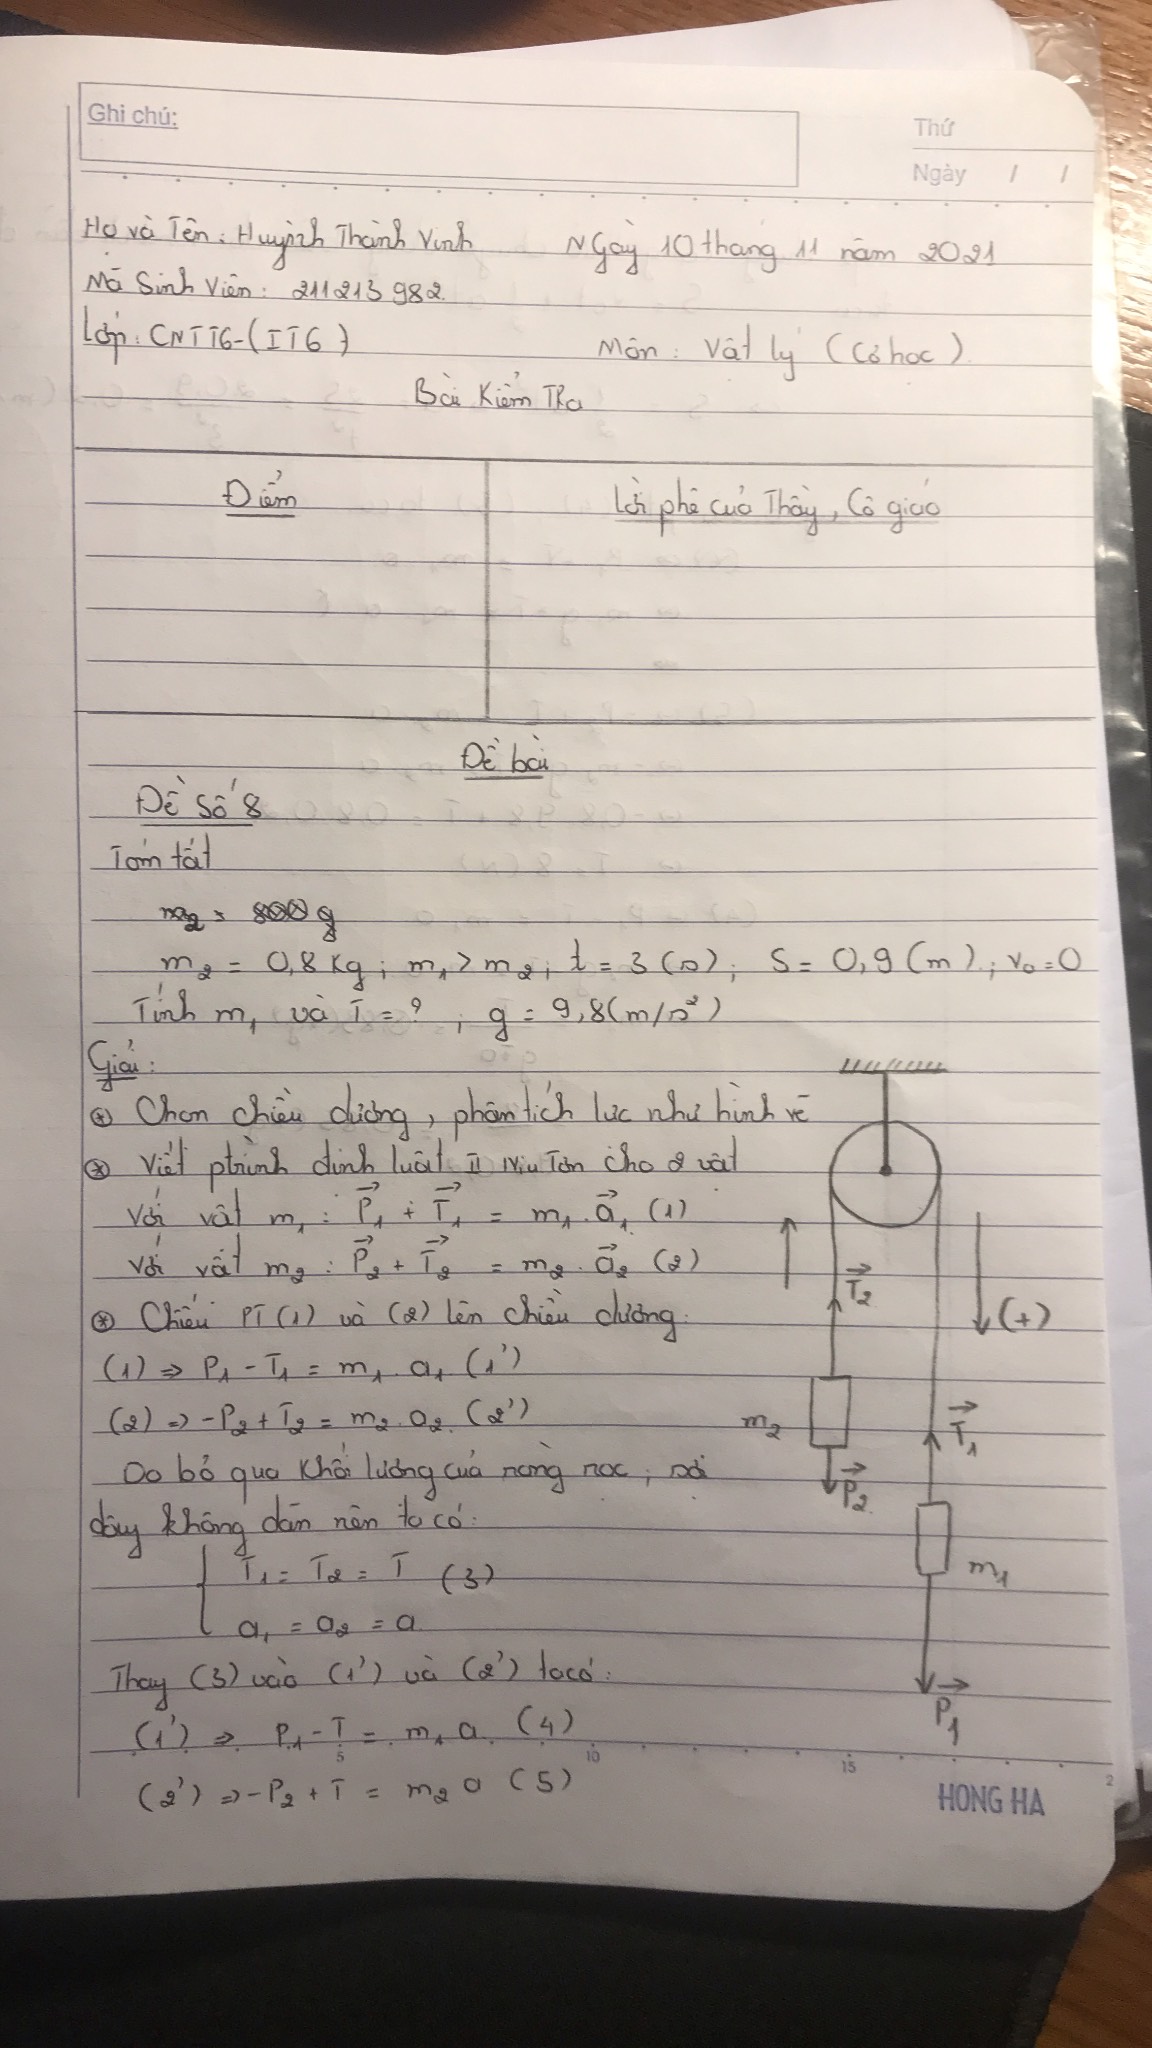 Ghi chú:
Thứ
Ngày / /
Họ và Tên: Huỳnh Thành Vinh
NGày 10 tháng 11 năm 2021
Mã Sinh Viên: 211213982.
Lớp: CNTT6-(IT6)
Môn: Vật lý (Cơ học).
Bài Kiểm TRa
Điểm
Lời phê của Thầy, Cô giáo
Đề bài
Đề Số 8
Tóm tắt
m₂ = 0,8 Kg; m₁ > m₂; t = 3 (s); S = 0,9 (m); v₀ = 0
Tính m₁ và T = ? ; g = 9,8 (m/s²)
Giải:
⊛ Chọn chiều dương, phân tích lực như hình vẽ
⊛ Viết ptrình định luật II Niu Tơn cho 2 vật
Với vật m₁ : P⃗₁ + T⃗₁ = m₁. a⃗₁ (1)
Với vật m₂ : P⃗₂ + T⃗₂ = m₂. a⃗₂ (2)
⊛ Chiếu PT (1) và (2) lên chiều dương:
(1) => P₁ - T₁ = m₁. a₁ (1')
(2) => -P₂ + T₂ = m₂. a₂. (2')
Do bỏ qua khối lượng của ròng rọc, sợi
dây không dãn nên ta có:
T₁ = T₂ = T (3)
a₁ = a₂ = a
Thay (3) vào (1') và (2') ta có:
(1') => P₁ - T = m₁ a (4)
(2') => -P₂ + T = m₂ a (5)
T⃗₂
(+)
m₂
T⃗₁
P⃗₂
m₁
P⃗₁
5 10 15 2
HONG HA